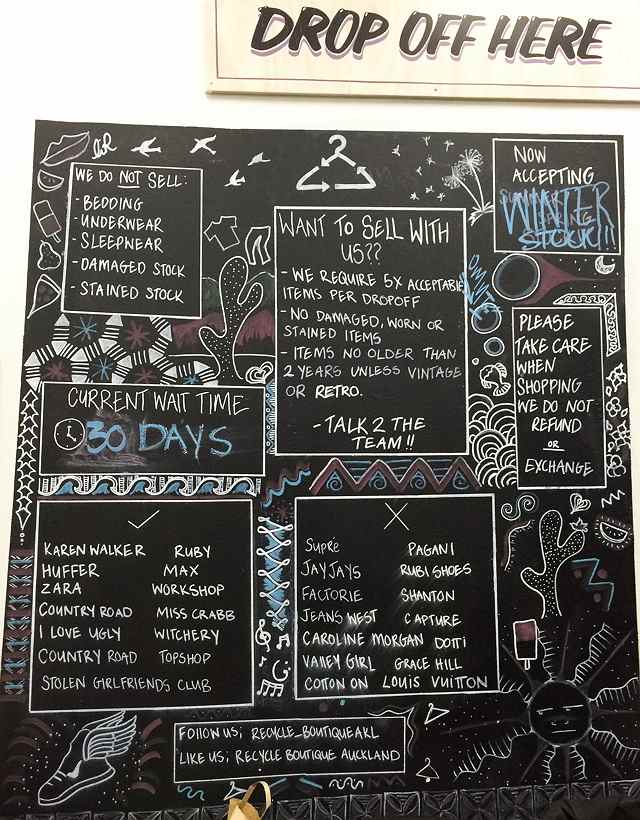 DROP OFF HERE
WE DO NOT SELL:
- BEDDING
- UNDERWEAR
- SLEEPWEAR
- DAMAGED STOCK
- STAINED STOCK
WANT TO SELL WITH
US??
- WE REQUIRE 5X ACCEPTABLE
ITEMS PER DROPOFF
- NO DAMAGED, WORN OR
STAINED ITEMS
- ITEMS NO OLDER THAN
2 YEARS UNLESS VINTAGE
OR RETRO.
- TALK 2 THE
TEAM!!
NOW
ACCEPTING
WINTER
STOCK!!
PLEASE
TAKE CARE
WHEN
SHOPPING
WE DO NOT
REFUND
OR
EXCHANGE
CURRENT WAIT TIME
30 DAYS
KAREN WALKER RUBY
HUFFER MAX
ZARA WORKSHOP
COUNTRY ROAD MISS CRABB
I LOVE UGLY WITCHERY
COUNTRY ROAD TOPSHOP
STOLEN GIRLFRIENDS CLUB
SUPRE PAGANI
JAYJAYS RUBI SHOES
FACTORIE SHANTON
JEANS WEST CAPTURE
CAROLINE MORGAN DOTTI
VALLEY GIRL GRACE HILL
COTTON ON LOUIS VUITTON
FOLLOW US; RECYCLE_BOUTIQUEAKL
LIKE US; RECYCLE BOUTIQUE AUCKLAND